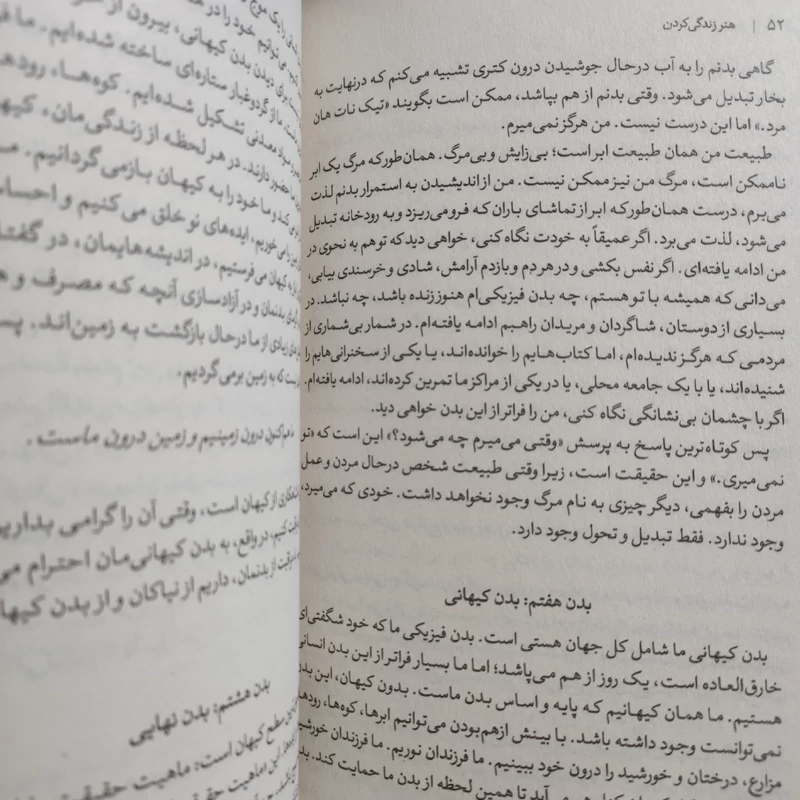 ۵۲ | هنر زندگی‌کردن
گاهی بدنم را به آب درحال جوشیدن درون کتری تشبیه می‌کنم که درنهایت به
بخار تبدیل می‌شود. وقتی بدنم از هم بپاشد، ممکن است بگویند «تیک نات هان
مرد.» اما این درست نیست. من هرگز نمی‌میرم.
طبیعت من همان طبیعت ابر است؛ بی‌زایش و بی‌مرگ. همان‌طورکه مرگ یک ابر
ناممکن است، مرگ من نیز ممکن نیست. من از اندیشیدن به استمرار بدنم لذت
می‌برم، درست همان‌طورکه ابر از تماشای باران که فرومی‌ریزد و به رودخانه تبدیل
می‌شود، لذت می‌برد. اگر عمیقاً به خودت نگاه کنی، خواهی دید که تو هم به نحوی در
من ادامه یافته‌ای. اگر نفس بکشی و در هر دم و بازدم آرامش، شادی و خرسندی بیابی،
می‌دانی که همیشه با تو هستم، چه بدن فیزیکی‌ام هنوز زنده باشد، چه نباشد. در
بسیاری از دوستان، شاگردان و مریدان راهبم ادامه یافته‌ام. در شمار بی‌شماری از
مردمی که هرگز ندیده‌ام، اما کتاب‌هایم را خوانده‌اند، یا یکی از سخنرانی‌هایم را
شنیده‌اند، یا با یک جامعه محلی، یا در یکی از مراکز ما تمرین کرده‌اند، ادامه یافته‌ام.
اگر با چشمان بی‌نشانگی نگاه کنی، من را فراتر از این بدن خواهی دید.
پس کوتاه‌ترین پاسخ به پرسش «وقتی می‌میرم چه می‌شود؟» این است که «تو
نمی‌میری.» و این حقیقت است، زیرا وقتی طبیعت شخص درحال مردن و عمل
مردن را بفهمی، دیگر چیزی به نام مرگ وجود نخواهد داشت. خودی که می‌میرد،
وجود ندارد. فقط تبدیل و تحول وجود دارد.
بدن هفتم: بدن کیهانی
بدن کیهانی ما شامل کل جهان هستی است. بدن فیزیکی ما که خود شگفتی‌ای
خارق‌العاده است، یک روز از هم می‌پاشد؛ اما ما بسیار فراتر از این بدن انسانی
هستیم. ما همان کیهانیم که پایه و اساس بدن ماست. بدون کیهان، این بدن
نمی‌توانست وجود داشته باشد. با بینش ازهم‌بودن می‌توانیم ابرها، کوه‌ها، رودها،
مزارع، درختان و خورشید را درون خود ببینیم. ما فرزندان نوریم. ما فرزندان خورشید
آید تا همین لحظه از بدن ما حمایت کند. بدن
بیرون از
ما از گردوغبار ستاره‌ای ساخته شده‌ایم.
مواد معدنی تشکیل شده‌ایم. کوه‌ها، رودها
حضور دارند. در هر لحظه از زندگی‌مان، کیهان
و ما خود را به کیهان بازمی‌گردانیم.
می‌خوریم، ایده‌های نو خلق می‌کنیم و احساس
به کیهان می‌فرستیم، در اندیشه‌هایمان، در
بدنمان و در آزادسازی آنچه که مصرف و
زیادی از ما درحال بازگشت به زمین‌اند. پس
است که به زمین برمی‌گردیم.
هم‌اکنون درون زمینیم و زمین درون ماست.
از کیهان است، وقتی آن را گرامی بداریم
کنیم، درواقع، به بدن کیهانی‌مان احترام می
از بدنمان، داریم از نیاکان و از بدن کیهانی
بدن هشتم: بدن نهایی
سطح کیهان است: ماهیت حقیقت